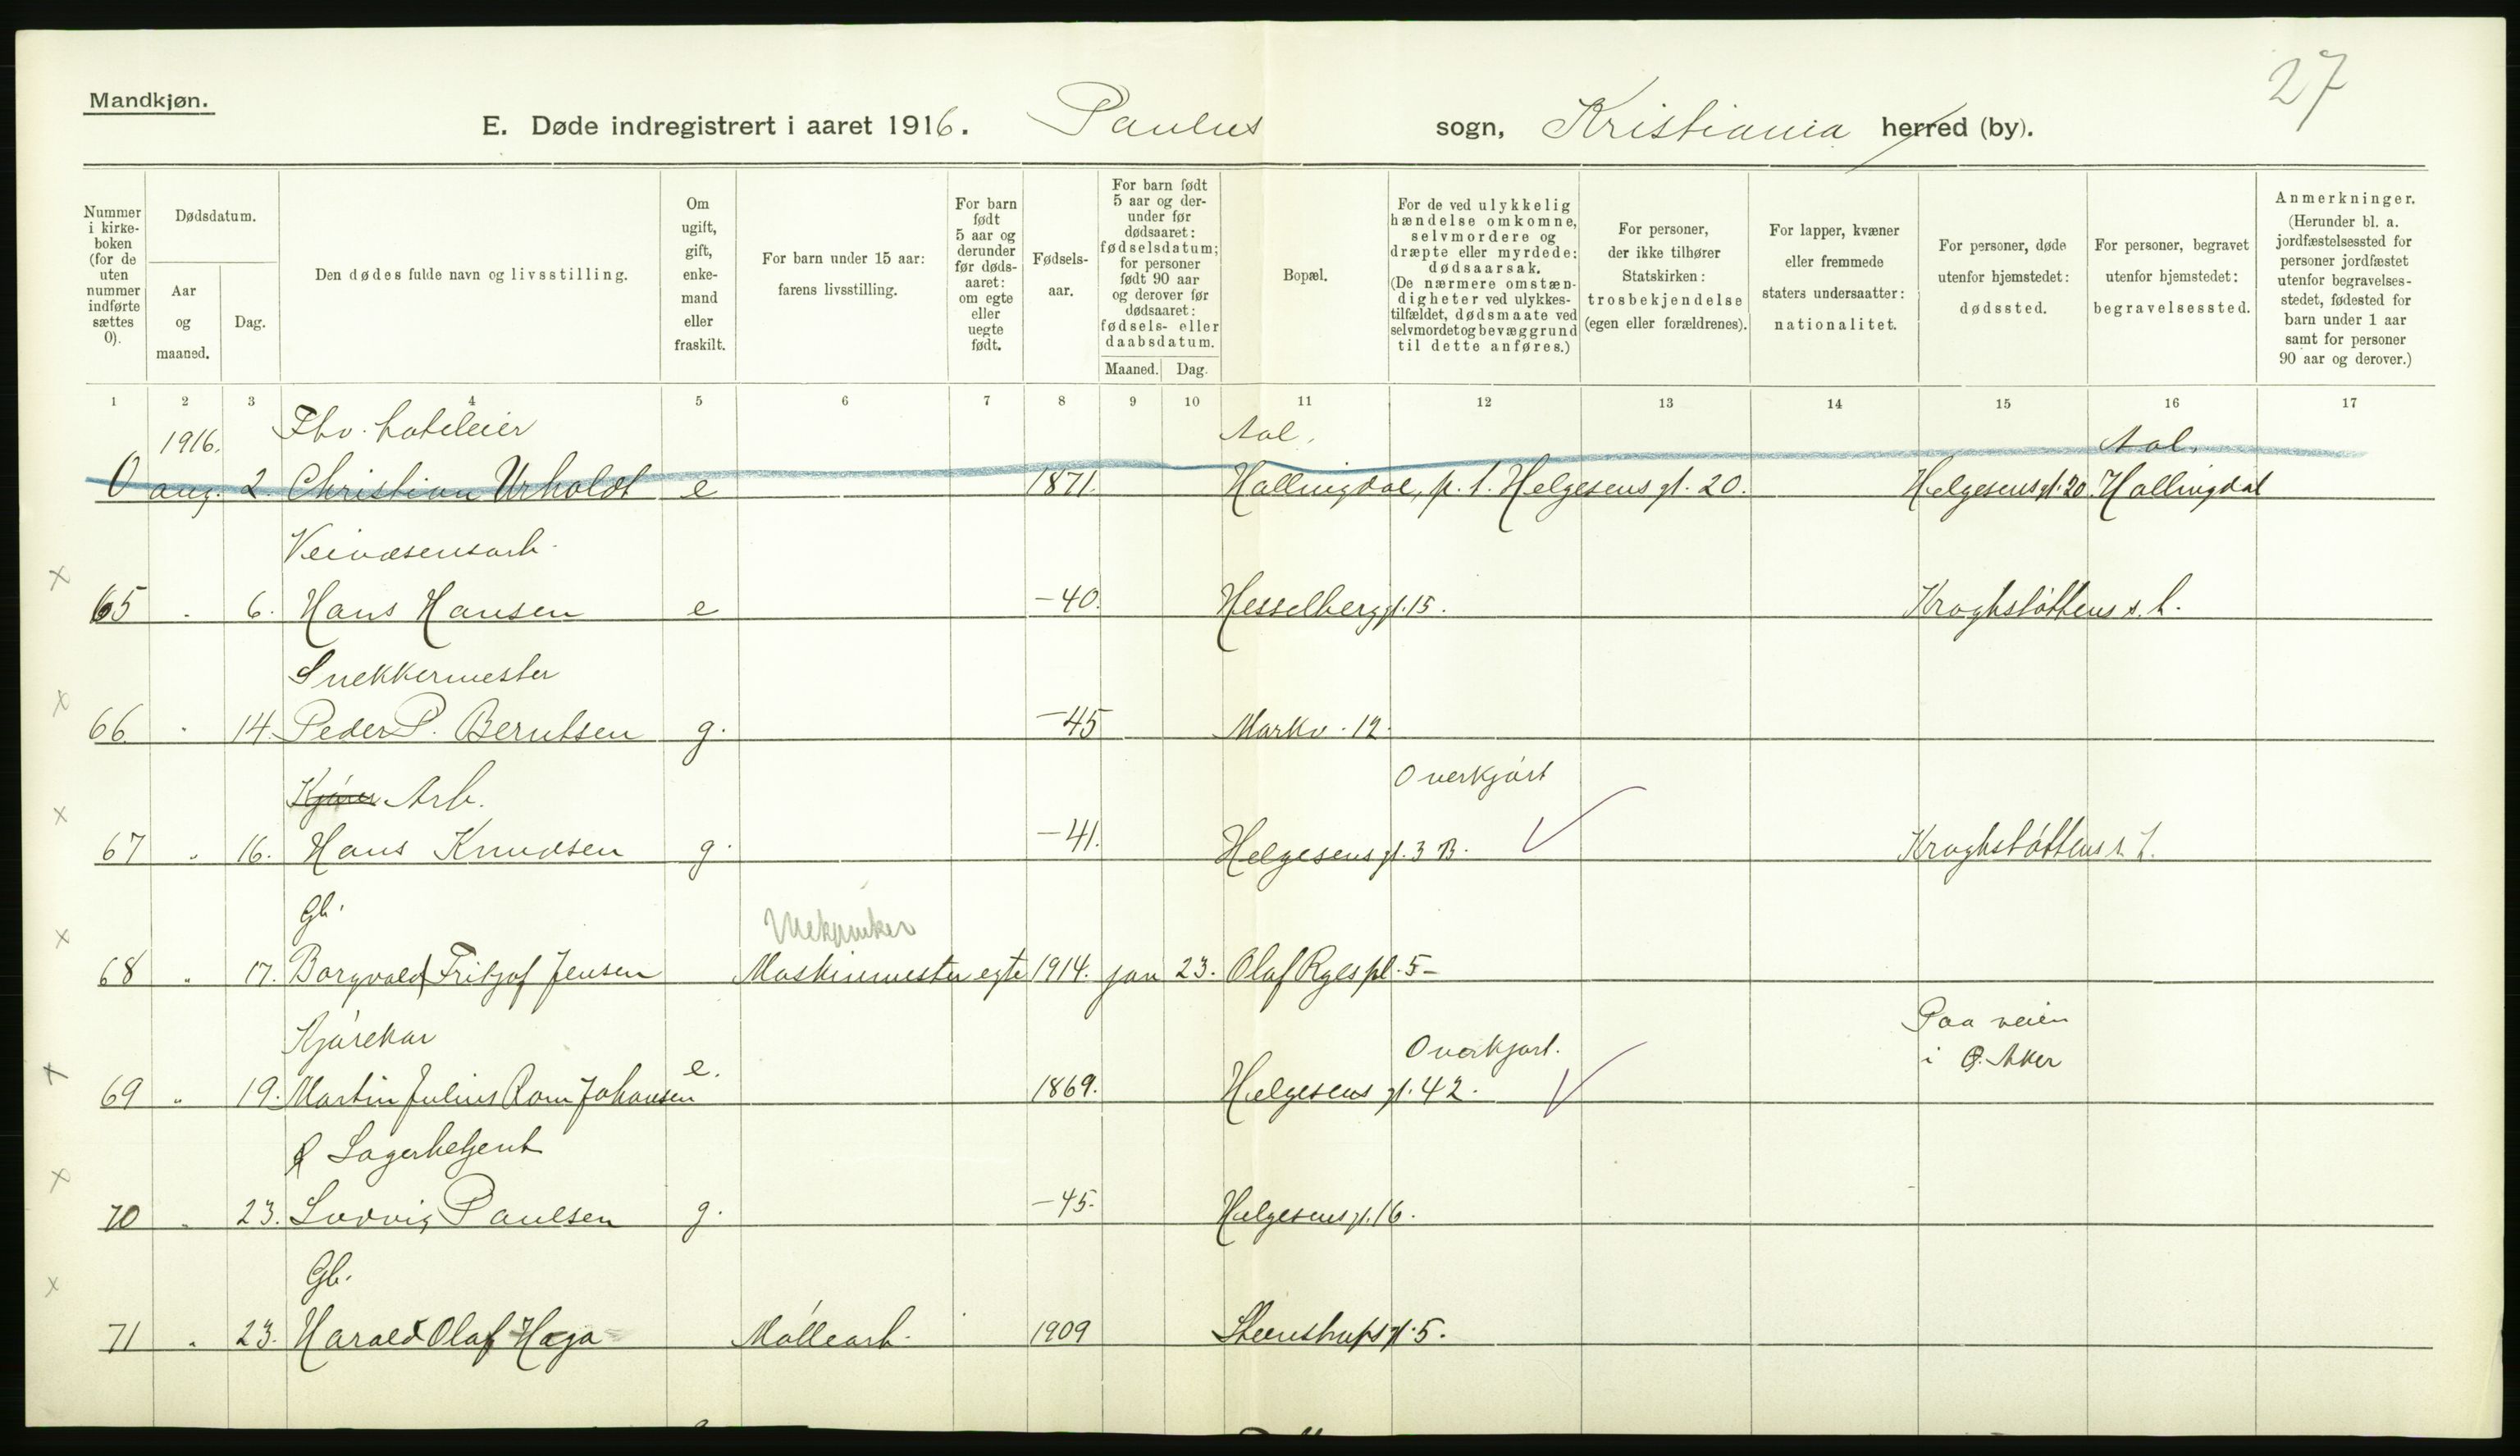 27
Mandkjøn.
E. Døde indregistrert i aaret 1916. Paulus sogn, Kristiania herred (by).
Nummer i kirke-boken (for de uten nummer indførte sættes 0).
Dødsdatum.
Aar og maaned.
Dag.
Den dødes fulde navn og livsstilling.
Om ugift, gift, enke-mand eller fraskilt.
For barn under 15 aar: farens livsstilling.
For barn født 5 aar og derunder før døds-aaret: om egte eller uegte født.
Fødsels-aar.
For barn født 5 aar og der-under før dødsaaret: fødselsdatum; for personer født 90 aar og derover før dødsaaret: fødsels- eller daabsdatum.
Maaned. Dag.
Bopæl.
For de ved ulykkelig hændelse omkomne, selvmordere og dræpte eller myrdede: dødsaarsak. (De nærmere omstæn-digheter ved ulykkes-tilfældet, dødsmaate ved selvmordet og bevæggrund til dette anføres.)
For personer, der ikke tilhører Statskirken: trosbekjendelse (egen eller forældrenes).
For lapper, kvæner eller fremmede staters undersaatter: nationalitet.
For personer, døde utenfor hjemstedet: dødssted.
For personer, begravet utenfor hjemstedet: begravelsessted.
Anmerkninger. (Herunder bl. a. jordfæstelsessted for personer jordfæstet utenfor begravelses-stedet, fødested for barn under 1 aar samt for personer 90 aar og derover.)
1 2 3 4 5 6 7 8 9 10 11 12 13 14 15 16 17
1916. Fhv. hoteleier Aal, Aal,
0 aug. 2. Christian Urholdt e 1871. Hallingdal, p. t. Helgesens gt. 20. Helgesens gt. 20 Hallingdal
Veivæsensarb.
x 65 " 6. Hans Hansen e -40. Hesselberggt. 15. Kroghstøttens s. h.
Snekkermester
x 66 " 14. Peder P. Berntsen g. -45 Markv. 12.
Kjører Arb. Overkjørt
x 67 " 16. Hans Knudsen g. -41. Helgesens gt. 3 B. Kroghstøttens s. h.
Gb. Mekaniker
x 68 " 17. Borgvald Fritjof Jensen Maskinmester egte 1914. jan 23. Olaf Ryes pl. 5-
Kjørekar Overkjørt. Paa veien
i Ø. Aker
x 69 " 19. Martin Julius Rom Johansen e. 1869. Helgesens gt. 42.
Lagerbetjent
x 70 " 23. Ludvig Paulsen g. -45. Helgesens gt. 16.
Gb.
x 71 " 23. Harald Olaf Haga Møllearb. 1909 Steenstrups gt. 5.